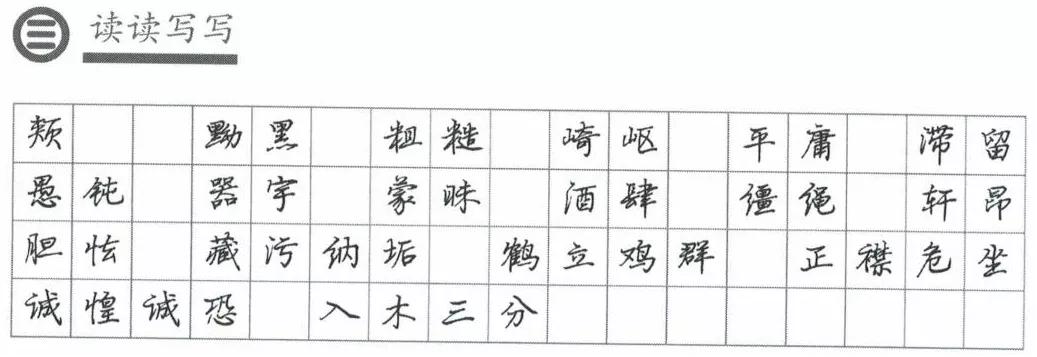 读读写写
颊 黝黑 粗糙 崎岖 平庸 滞留
愚钝 器宇 蒙昧 酒肆 缰绳 轩昂
胆怯 藏污纳垢 鹤立鸡群 正襟危坐
诚惶诚恐 入木三分